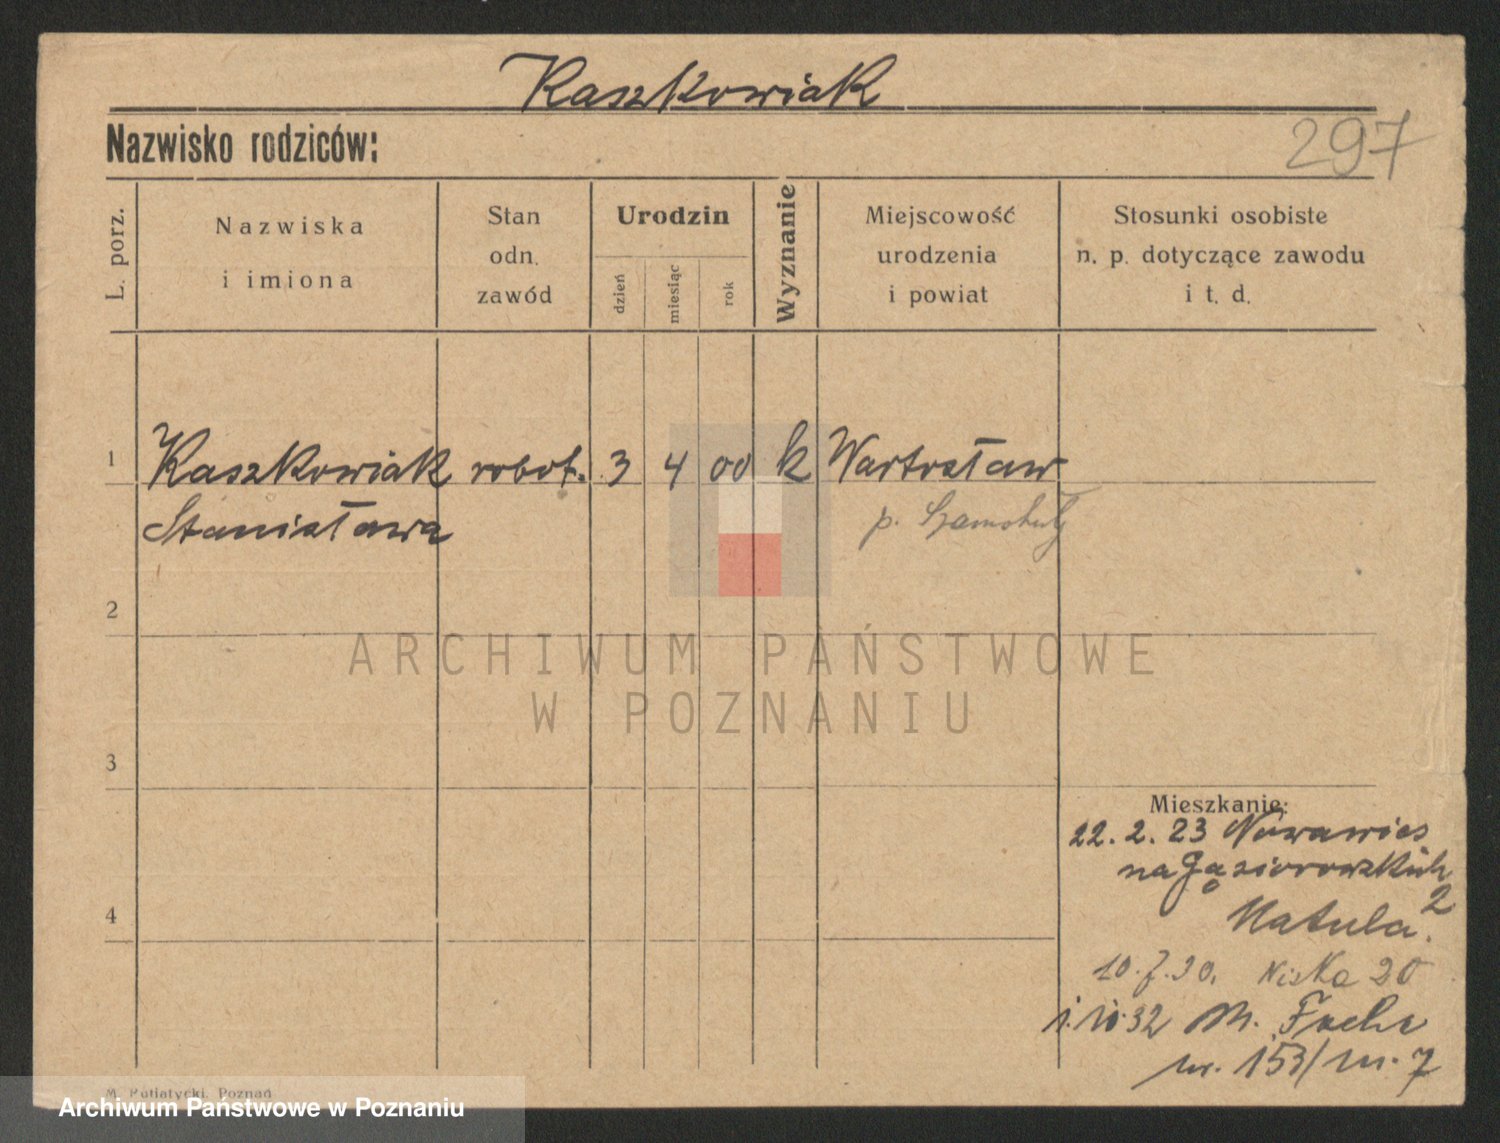 Kaszkowiak
297
Nazwisko rodziców:
L. porz.
Nazwiska
i imiona
Stan
odn.
zawód
Urodzin
dzień
miesiąc
rok
Wyznanie
Miejscowość
urodzenia
i powiat
Stosunki osobiste
n. p. dotyczące zawodu
i t. d.
1 Kaszkowiak robot. 3 4 00 k Wartosław
Stanisława p. Szamotuły
2
ARCHIWUM PAŃSTWOWE
W POZNANIU
3
Mieszkanie:
22. 2. 23 Nowawies
na Gąsiorowskich
2
4
Matula.
10. 7. 30. Niska 20
1. 10. 32 M. Focha
nr. 153/m. 7
M. Putiatycki. Poznań
Archiwum Państwowe w Poznaniu